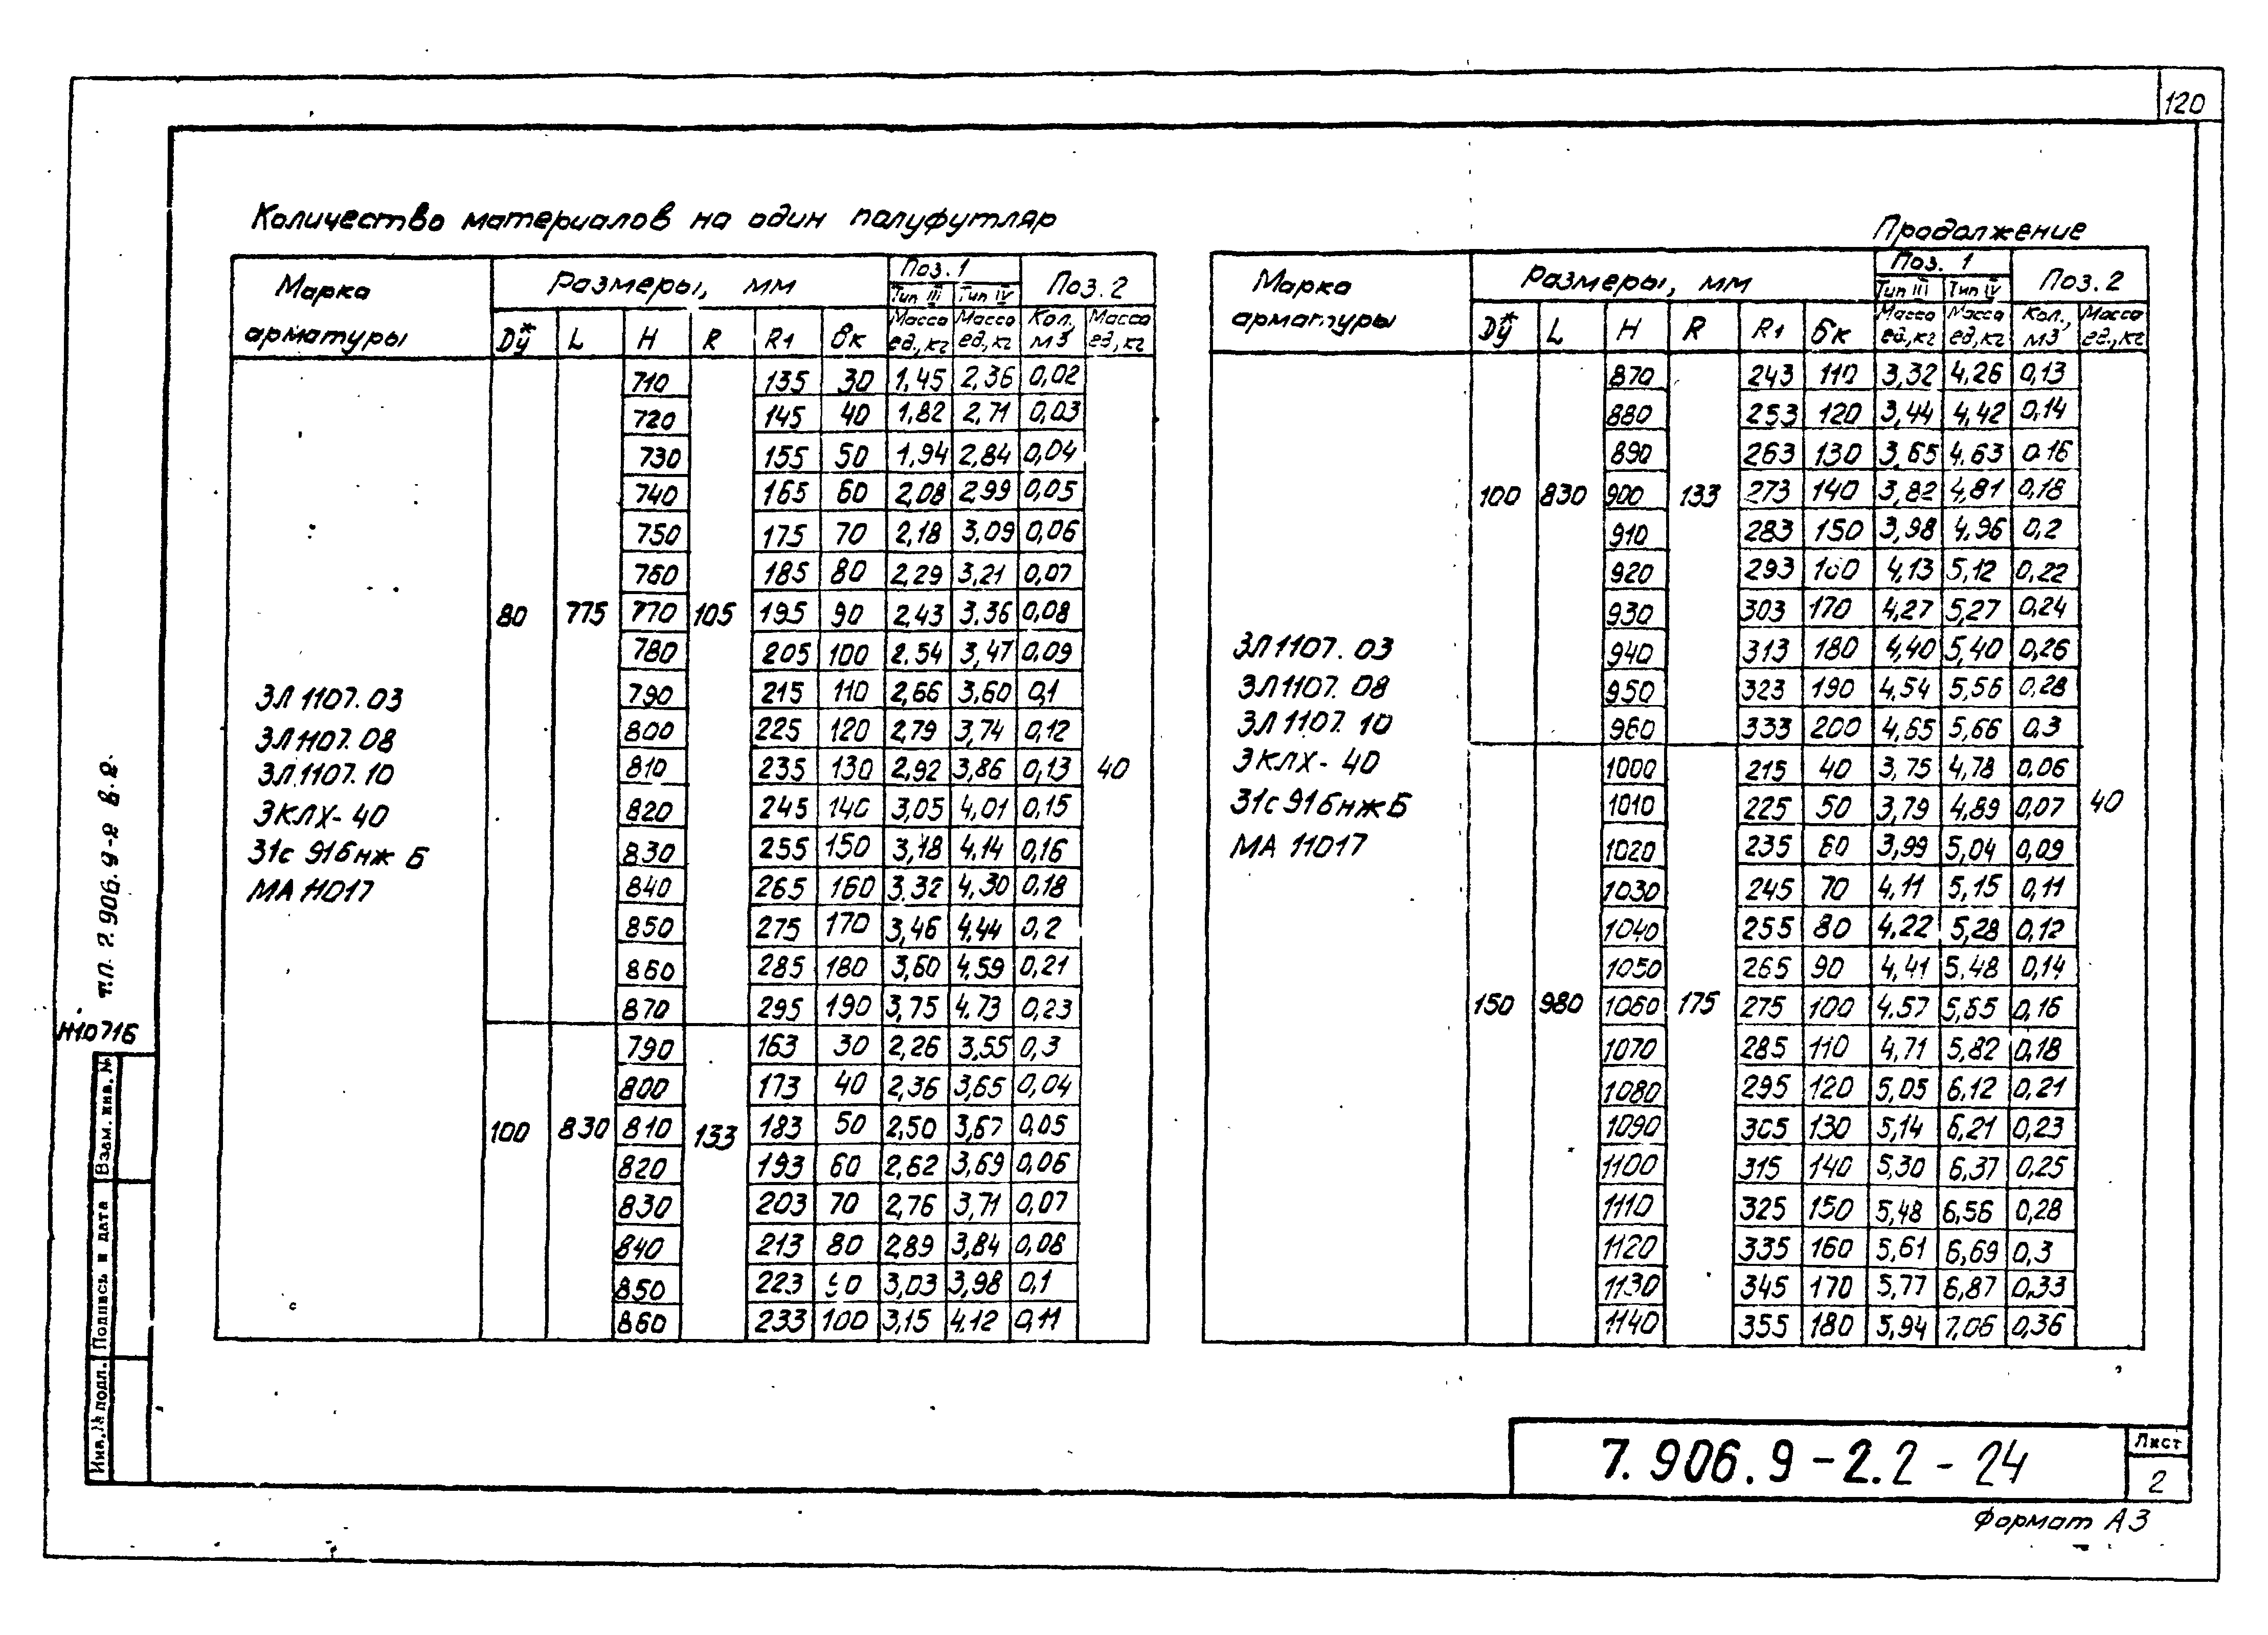 120
Количество материалов на один полуфутляр
Марка арматуры | Размеры, мм | Поз. 1 | Поз. 2
Тип III | Тип IV
Dу* | L | H | R | R1 | бк | Масса ед., кг | Масса ед., кг | Кол., м3 | Масса ед., кг
ЗЛ 1107.03
ЗЛ 1107.08
ЗЛ 1107.10
ЗКЛХ-40
31с 916нж Б
МА 11017
80 775 105
40
710 135 30 1,45 2,36 0,02
720 145 40 1,82 2,71 0,03
730 155 50 1,94 2,84 0,04
740 165 60 2,08 2,99 0,05
750 175 70 2,18 3,09 0,06
760 185 80 2,29 3,21 0,07
770 195 90 2,43 3,36 0,08
780 205 100 2.54 3,47 0,09
790 215 110 2,66 3,60 0,1
800 225 120 2,79 3,74 0,12
810 235 130 2,92 3,86 0,13
820 245 140 3,05 4,01 0,15
830 255 150 3,18 4.14 0,16
840 265 160 3.32 4.30 0,18
850 275 170 3,46 4.44 0,2
860 285 180 3,60 4.59 0,21
870 295 190 3,75 4.73 0,23
100 830 133
790 163 30 2,26 3,55 0,3
800 173 40 2,36 3,65 0,04
810 183 50 2,50 3,67 0,05
820 193 60 2,62 3,69 0,06
830 203 70 2,76 3,71 0,07
840 213 80 2,89 3,84 0,08
850 223 90 3,03 3,98 0,1
860 233 100 3,15 4.12 0,11
Продолжение
Марка арматуры | Размеры, мм | Поз. 1 | Поз. 2
Тип III | Тип IV
Dу* | L | H | R | R1 | бк | Масса ед., кг | Масса ед., кг | Кол., м3 | Масса ед., кг
ЗЛ 1107.03
ЗЛ 1107.08
ЗЛ 1107.10
ЗКЛХ-40
31с 916нж Б
МА 11017
100 830 133
40
870 243 110 3,32 4.26 0,13
880 253 120 3,44 4,42 0,14
890 263 130 3,65 4.63 0,16
900 273 140 3,82 4,81 0,18
910 283 150 3,98 4.96 0,2
920 293 160 4,13 5,12 0,22
930 303 170 4,27 5,27 0,24
940 313 180 4,40 5,40 0,26
950 323 190 4,54 5,56 0,28
960 333 200 4,65 5,66 0,3
150 980 175
1000 215 40 3,75 4,78 0,06
1010 225 50 3,79 4,89 0,07
1020 235 60 3,99 5,04 0,09
1030 245 70 4,11 5,15 0,11
1040 255 80 4,22 5,28 0,12
1050 265 90 4,41 5.48 0,14
1060 275 100 4.57 5,65 0,16
1070 285 110 4,71 5,82 0,18
1080 295 120 5,05 6,12 0,21
1090 305 130 5,14 6,21 0,23
1100 315 140 5,30 6,37 0,25
1110 325 150 5,48 6,56 0,28
1120 335 160 5,61 6,69 0,3
1130 345 170 5,77 6,87 0,33
1140 355 180 5,94 7,06 0,36
т.п. 7.906.9-2 в.2.
Н10716
Взам. инв. №
Подпись и дата
Инв. № подл.
7.906.9-2.2-24
Лист
2
Формат А3